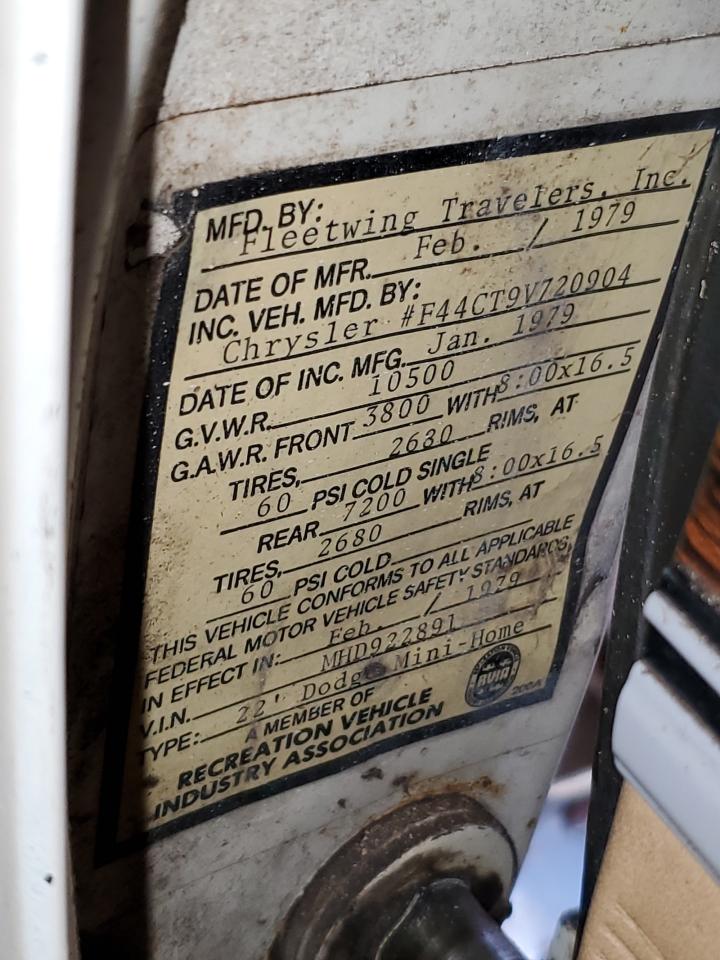 MFD. BY:
Fleetwing Travelers, Inc.
DATE OF MFR. Feb. / 1979
INC. VEH. MFD. BY:
Chrysler #F44CT9V720904
DATE OF INC. MFG. Jan. 1979
G.V.W.R. 10500
G.A.W.R. FRONT 3800 WITH 8:00x16.5
TIRES, 2680 RIMS, AT
60 PSI COLD SINGLE
REAR 7200 WITH 8:00x16.5
TIRES, 2680 RIMS, AT
60 PSI COLD
THIS VEHICLE CONFORMS TO ALL APPLICABLE
FEDERAL MOTOR VEHICLE SAFETY STANDARDS,
IN EFFECT IN: Feb. / 1979
V.I.N. MHD922891
TYPE: 22' Dodge Mini-Home
A MEMBER OF
RECREATION VEHICLE
INDUSTRY ASSOCIATION
RVIA
200A